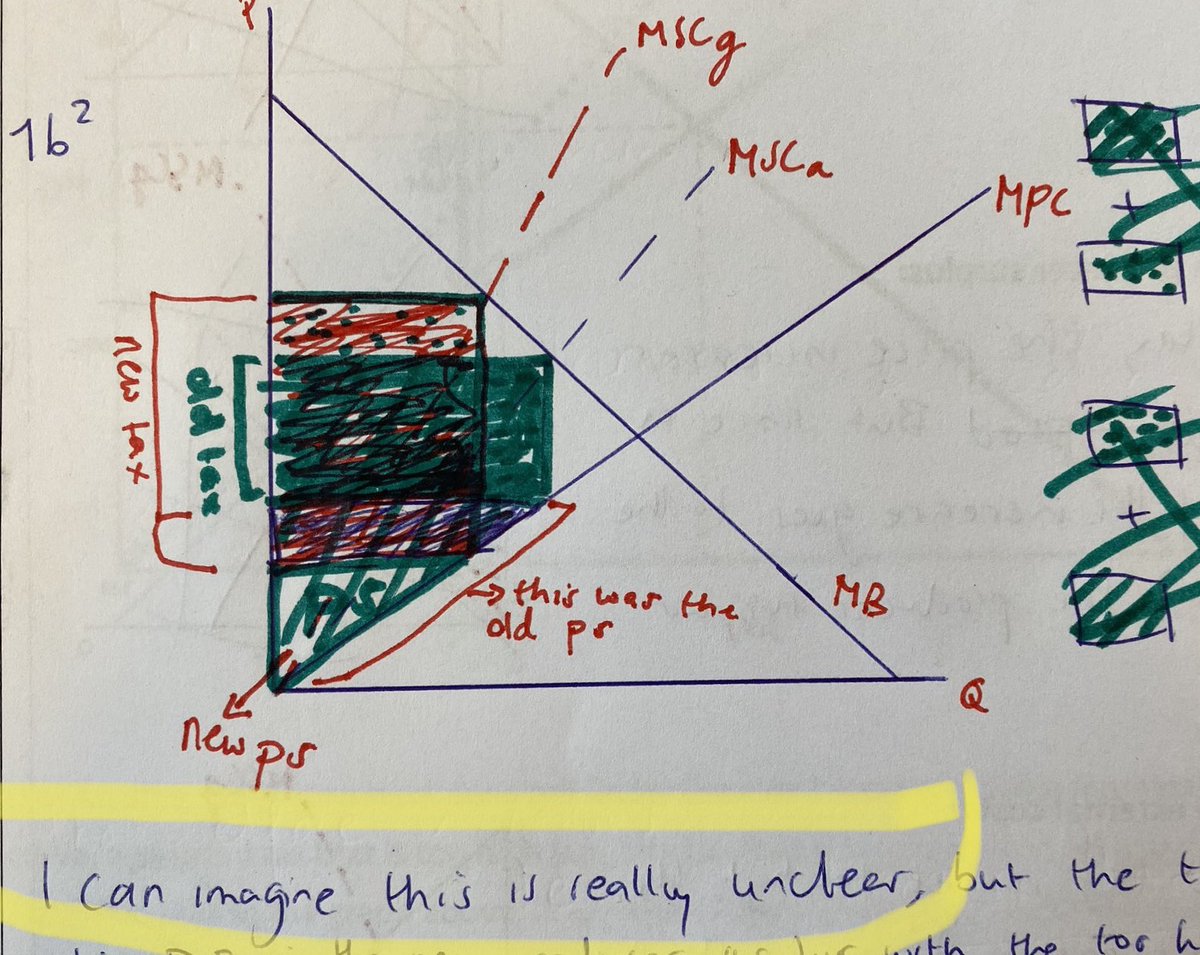 P
1b²
MSCg
MSCa
MPC
new tax
old tax
PS
→ this was the
old ps
MB
Q
new ps
+
+
I can imagine this is really uncleer, but the t
with the